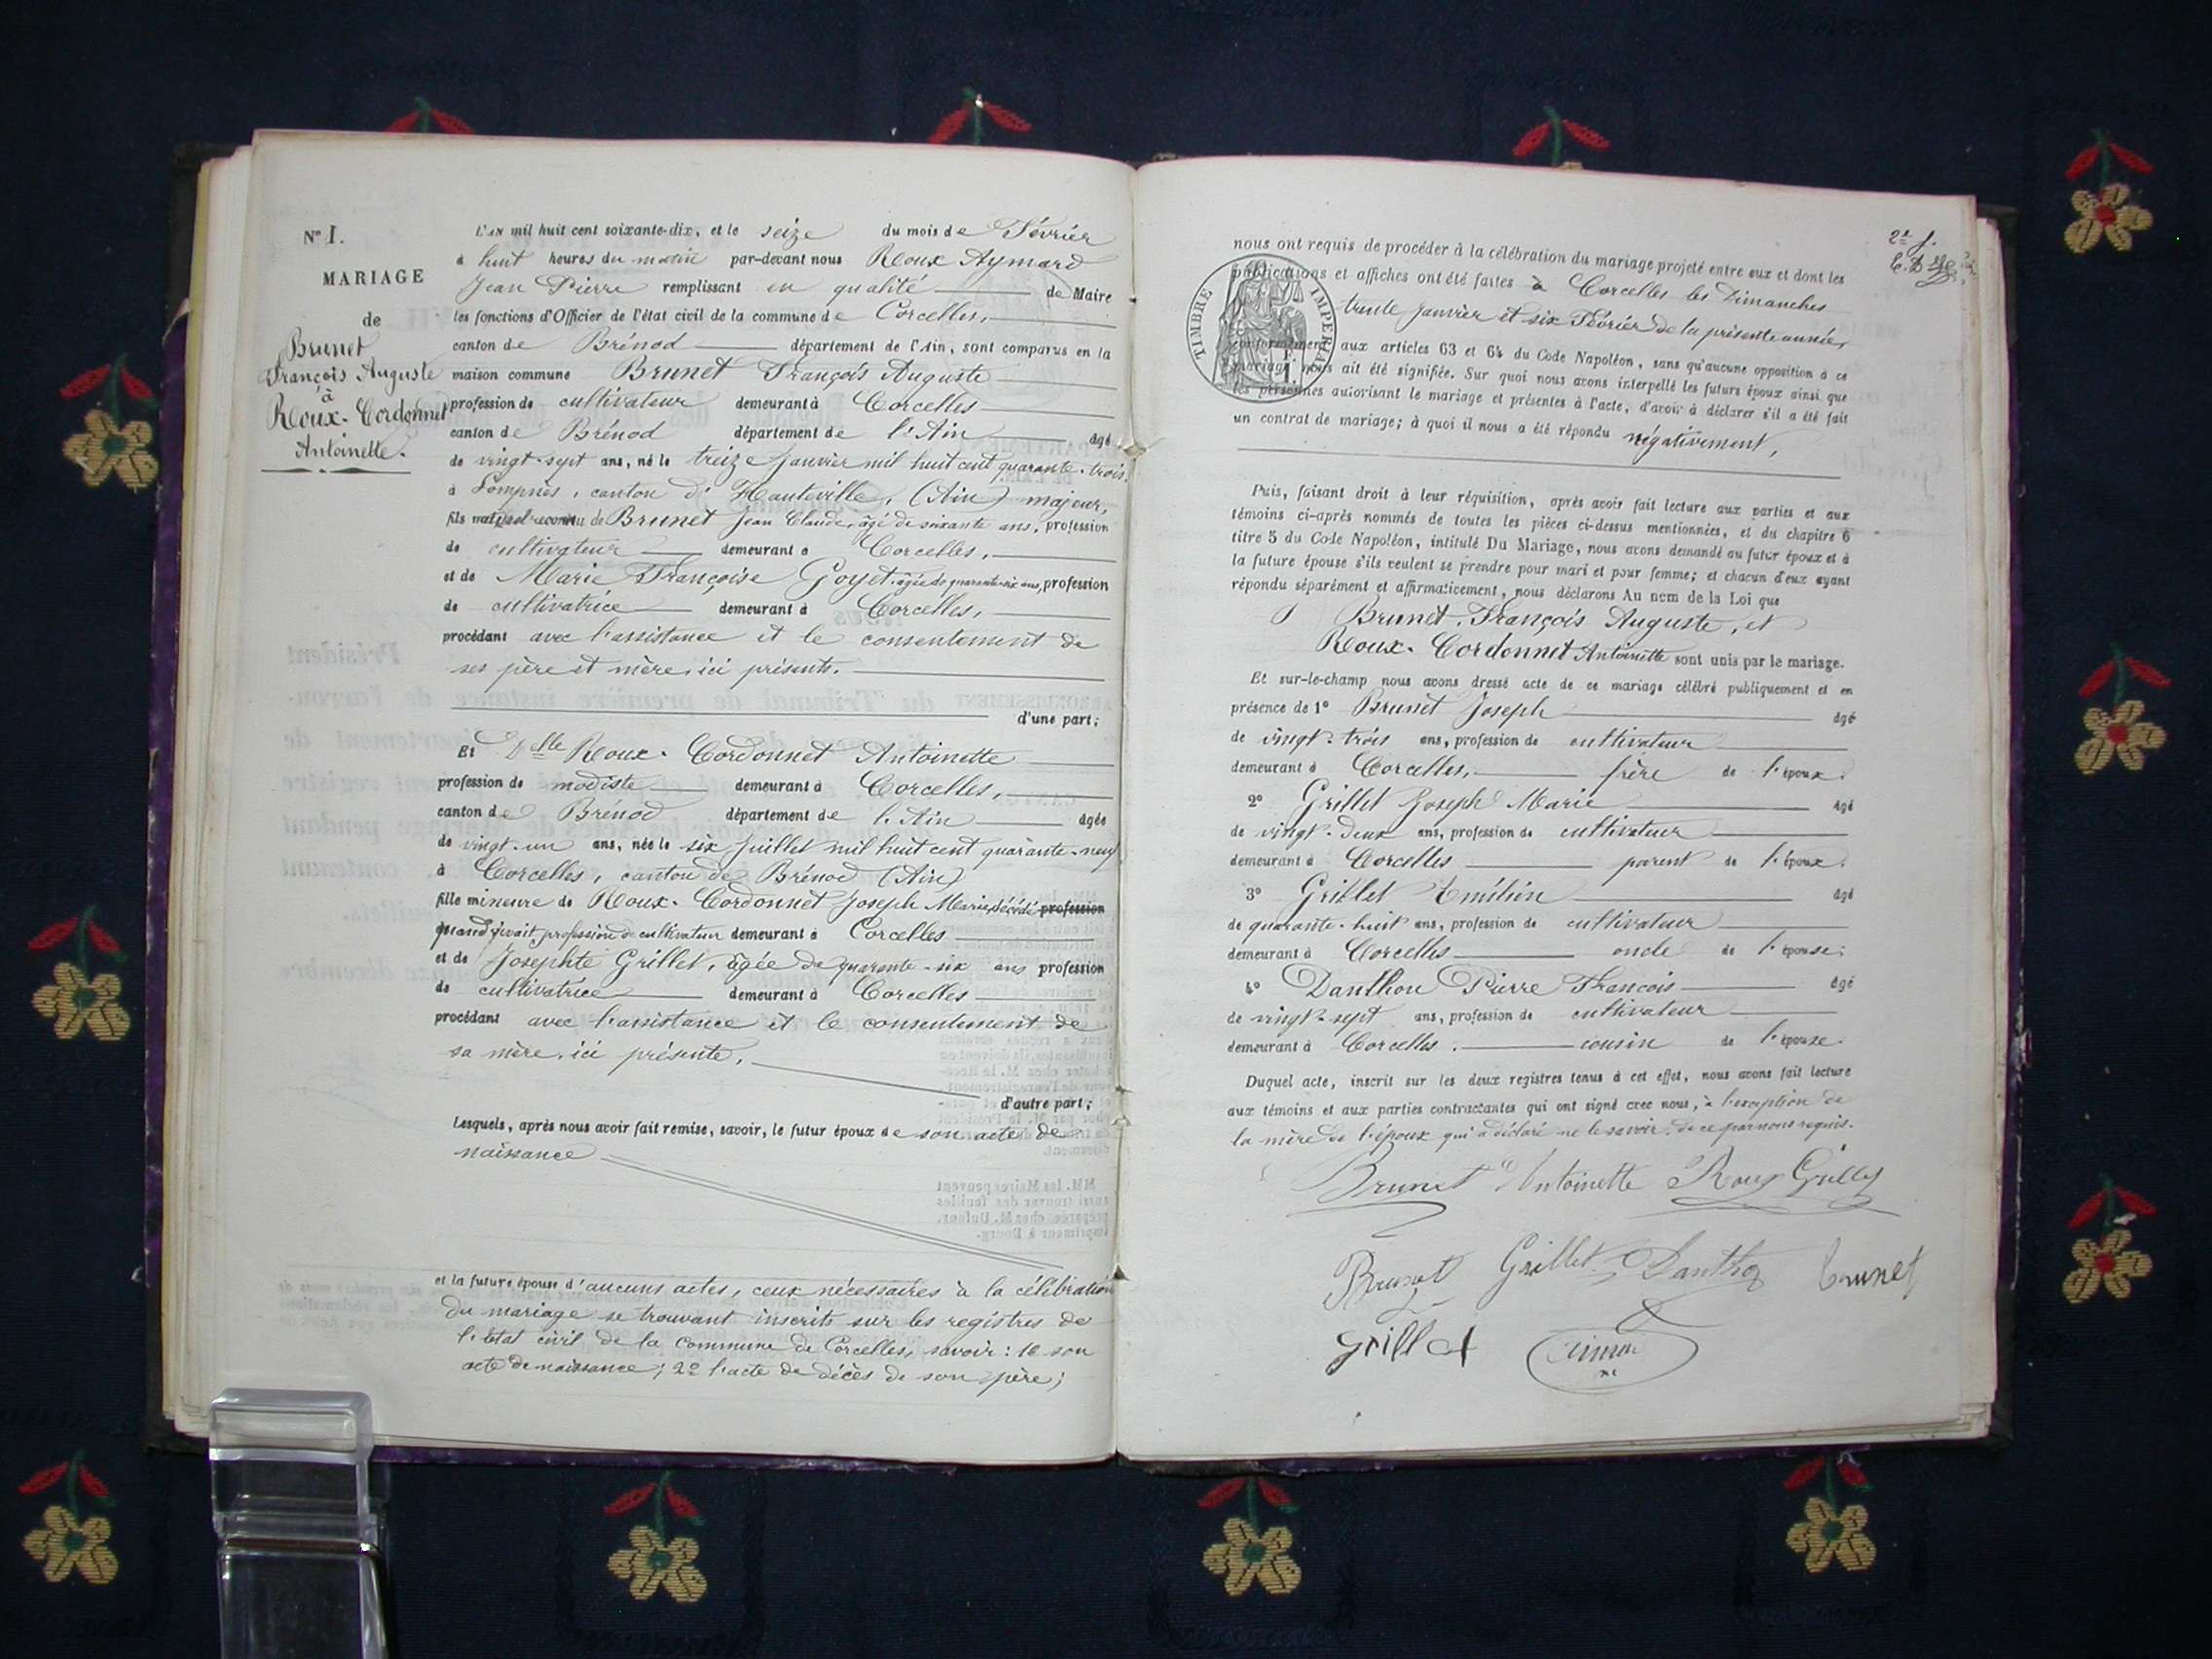 N° 1.
MARIAGE
de
Brunet
François Auguste
à
Roux-Cordonnet
Antoinette.
L'AN mil huit cent soixante-dix, et le seize du mois de Février
à huit heures du matin par-devant nous Roux Aymard
Jean Pierre remplissant en qualité de Maire
les fonctions d'Officier de l'état civil de la commune de Corcelles,
canton de Brénod département de l'Ain, sont comparus en la
maison commune Brunet François Auguste
profession de cultivateur demeurant à Corcelles
canton de Brénod département de l'Ain âgé
de vingt-sept ans, né le treize Janvier mil huit cent quarante-trois
à Lompnes, canton d'Hauteville, (Ain) majeur,
fils de Brunet Jean Claude, âgé de soixante ans, profession
de cultivateur demeurant à Corcelles,
et de Marie Françoise Goyet, âgée de quarante-six ans, profession
de cultivatrice demeurant à Corcelles,
procédant avec l'assistance et le consentement de
ses père et mère, ici présents.
d'une part;
Et Delle Roux-Cordonnet Antoinette
profession de modiste demeurant à Corcelles,
canton de Brénod département de l'Ain âgée
de vingt-un ans, née le six Juillet mil huit cent quarante-neuf
à Corcelles, canton de Brénod (Ain)
fille mineure de Roux-Cordonnet Joseph Marie, décédé profession
quand vivait profession de cultivateur demeurant à Corcelles
et de Josephte Grillet, âgée de quarante-six ans profession
de cultivatrice demeurant à Corcelles
procédant avec l'assistance et le consentement de
sa mère, ici présente.
d'autre part;
Lesquels, après nous avoir fait remise, savoir, le futur époux de son acte de
naissance
et la future épouse d'aucuns actes, ceux nécessaires à la célébration
du mariage se trouvant inscrits sur les registres de
l'état civil de la commune de Corcelles, savoir: 1° son
acte de naissance; 2° l'acte de décès de son père;
2e f.
nous ont requis de procéder à la célébration du mariage projeté entre eux et dont les
publications et affiches ont été faites à Corcelles les Dimanches
trente Janvier et six Février de la présente année,
TIMBRE IMPERIAL
conformément aux articles 63 et 64 du Code Napoléon, sans qu'aucune opposition à ce
mariage nous ait été signifiée. Sur quoi nous avons interpellé les futurs époux ainsi que
les personnes autorisant le mariage et présentes à l'acte, d'avoir à déclarer s'il a été fait
un contrat de mariage; à quoi il nous a été répondu négativement,
Puis, faisant droit à leur réquisition, après avoir fait lecture aux parties et aux
témoins ci-après nommés de toutes les pièces ci-dessus mentionnées, et du chapitre 6
titre 5 du Code Napoléon, intitulé Du Mariage, nous avons demandé au futur époux et à
la future épouse s'ils veulent se prendre pour mari et pour femme; et chacun d'eux ayant
répondu séparément et affirmativement, nous déclarons Au nom de la Loi que
Brunet, François Auguste, et
Roux-Cordonnet Antoinette sont unis par le mariage.
Et sur-le-champ nous avons dressé acte de ce mariage célébré publiquement et en
présence de 1° Brunet Joseph âgé
de vingt-trois ans, profession de cultivateur
demeurant à Corcelles, frère de l'époux.
2° Grillet Joseph Marie âgé
de vingt-deux ans, profession de cultivateur
demeurant à Corcelles parent de l'époux.
3° Grillet Emilien âgé
de quarante-huit ans, profession de cultivateur
demeurant à Corcelles oncle de l'épouse;
4° Danthon Pierre François âgé
de vingt-sept ans, profession de cultivateur
demeurant à Corcelles. cousin de l'épouse.
Duquel acte, inscrit sur les deux registres tenus à cet effet, nous avons fait lecture
aux témoins et aux parties contractantes qui ont signé avec nous, à l'exception de
la mère de l'époux qui a déclaré ne le savoir, de ce par nous requis.
Brunet Antoinette Roux Grillet
Brunet Grillet Danthon Brunet
Grillet